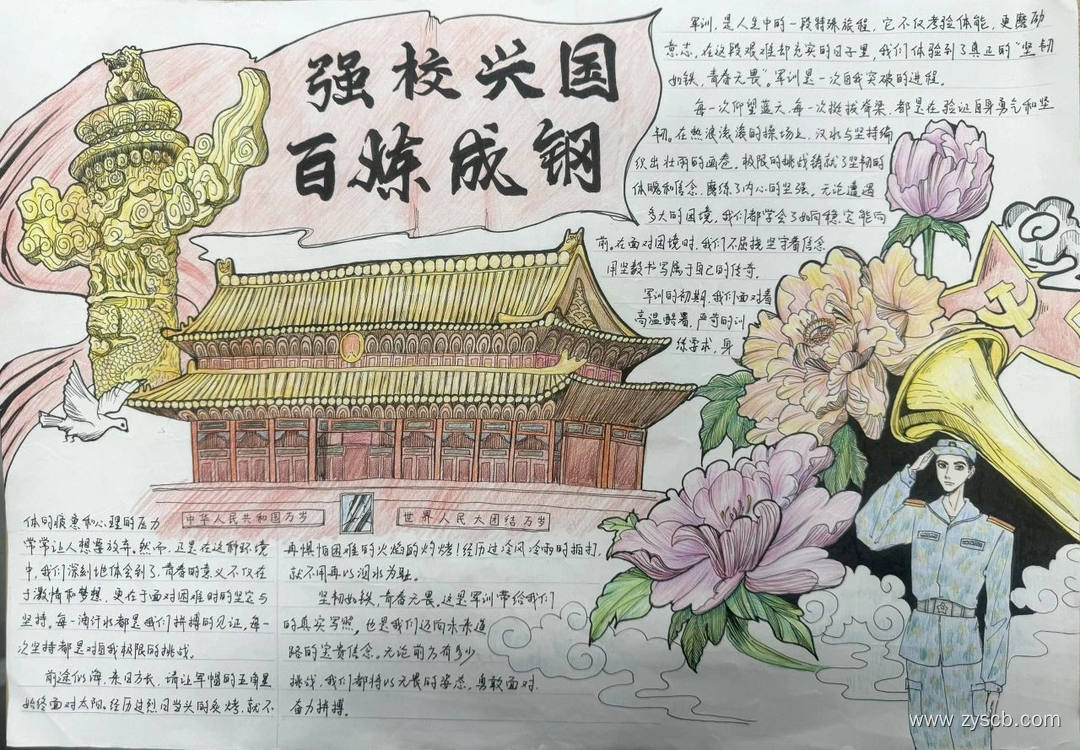 强校兴国
百炼成钢
军训，是人生中的一段特殊旅程，它不仅考验体能，更磨励
意志，在这段艰难却充实的日子里，我们体验到了真正的“坚韧
如铁，青春无畏”。军训是一次自我突破的进程。
每一次仰望蓝天，每一次挺拔脊梁，都是在验证自身勇气和坚
韧。在热浪滚滚的操场上，汉水与坚持编
织出壮丽的画卷。极限的挑战铸就了坚韧的
体魄和信念，磨练了内心的坚强。无论遭遇
多大的困境，我们都学会了如何稳定能向
前。在面对困境时，我们不屈挠坚守着信念
用坚毅书写属于自己的传奇。
军训的初期，我们面对着
高温酷暑，严苛的训
练要求，身
中华人民共和国万岁
世界人民大团结万岁
体的疲惫和心理的压力
常常让人想要放弃。然而，正是在这种环境
中，我们深刻地体会到了，青春的意义不仅在
于激情和梦想，更在于面对困难时的坚定与
坚持，每一滴汗水都是我们拼搏的见证，每一
次坚持都是对自我极限的挑战。
前途似海，来日方长，请让军帽的五角星
始终面对太阳。经历过烈日当头的炙烤，就不
再惧怕困难的火焰的灼烤！经历过冷风冷雨的拍打，
就不用再以泪水为耻。
坚韧如铁，青春无畏。这是军训带给我们
的真实写照，也是我们迈向未来道
路的宝贵信念。无论前方有多少
挑战，我们都将以无畏的姿态，勇敢面对，
奋力拼搏。
www.zyscb.com